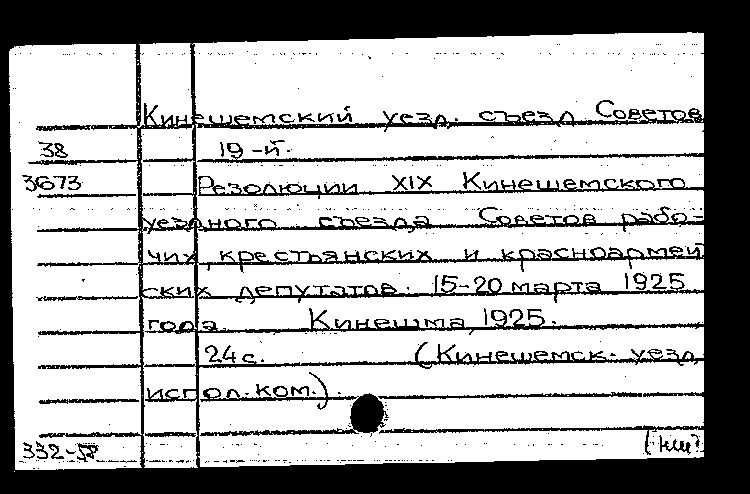 Кинешемский уезд. съезд Советов
38 19-й.
3673 Резолюции XIX Кинешемского
уездного съезда Советов рабо-
чих, крестьянских и красноармей
ских депутатов. 15-20 марта 1925
года. Кинешма, 1925.
24 с. (Кинешемск. уезд.
испол. ком.).
332-58